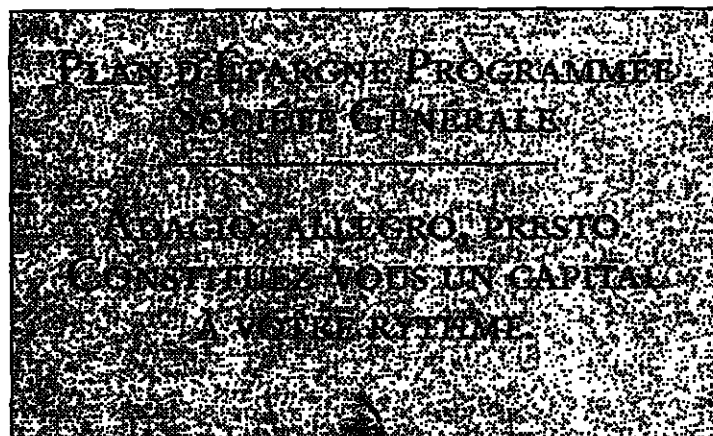 PLAN D'ÉPARGNE PROGRAMMÉE
SOCIÉTÉ GÉNÉRALE
ADAGIO, ALLEGRO, PRESTO.
CONSTITUEZ-VOUS UN CAPITAL
À VOTRE RYTHME.